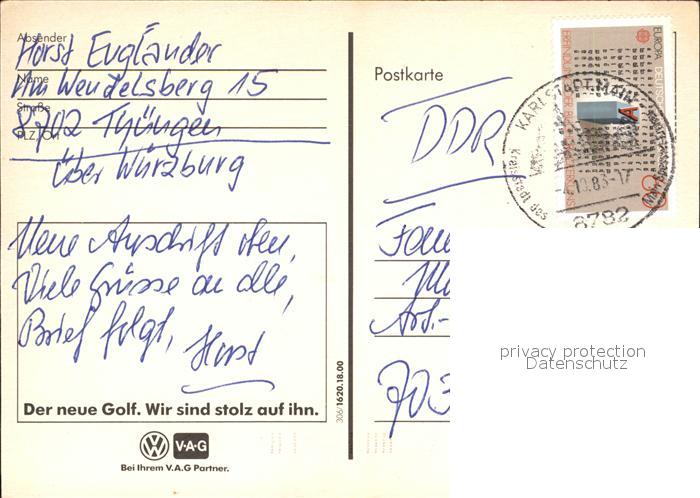 Absender
Horst Engländer
Name
Am Wendelsberg 15
Straße
8702 Thüngen
PLZ, Ort
über Würzburg
Neue Anschrift oben,
Viele Grüsse an alle,
Brief folgt,
Horst
Der neue Golf. Wir sind stolz auf ihn.
V·A·G
Bei Ihrem V.A.G Partner.
306/1620.18.00
Postkarte
DDR
EUROPA
KARLSTADT, MAIN
Kreisstadt des
10.83-17
8782
703
privacy protection
Datenschutz